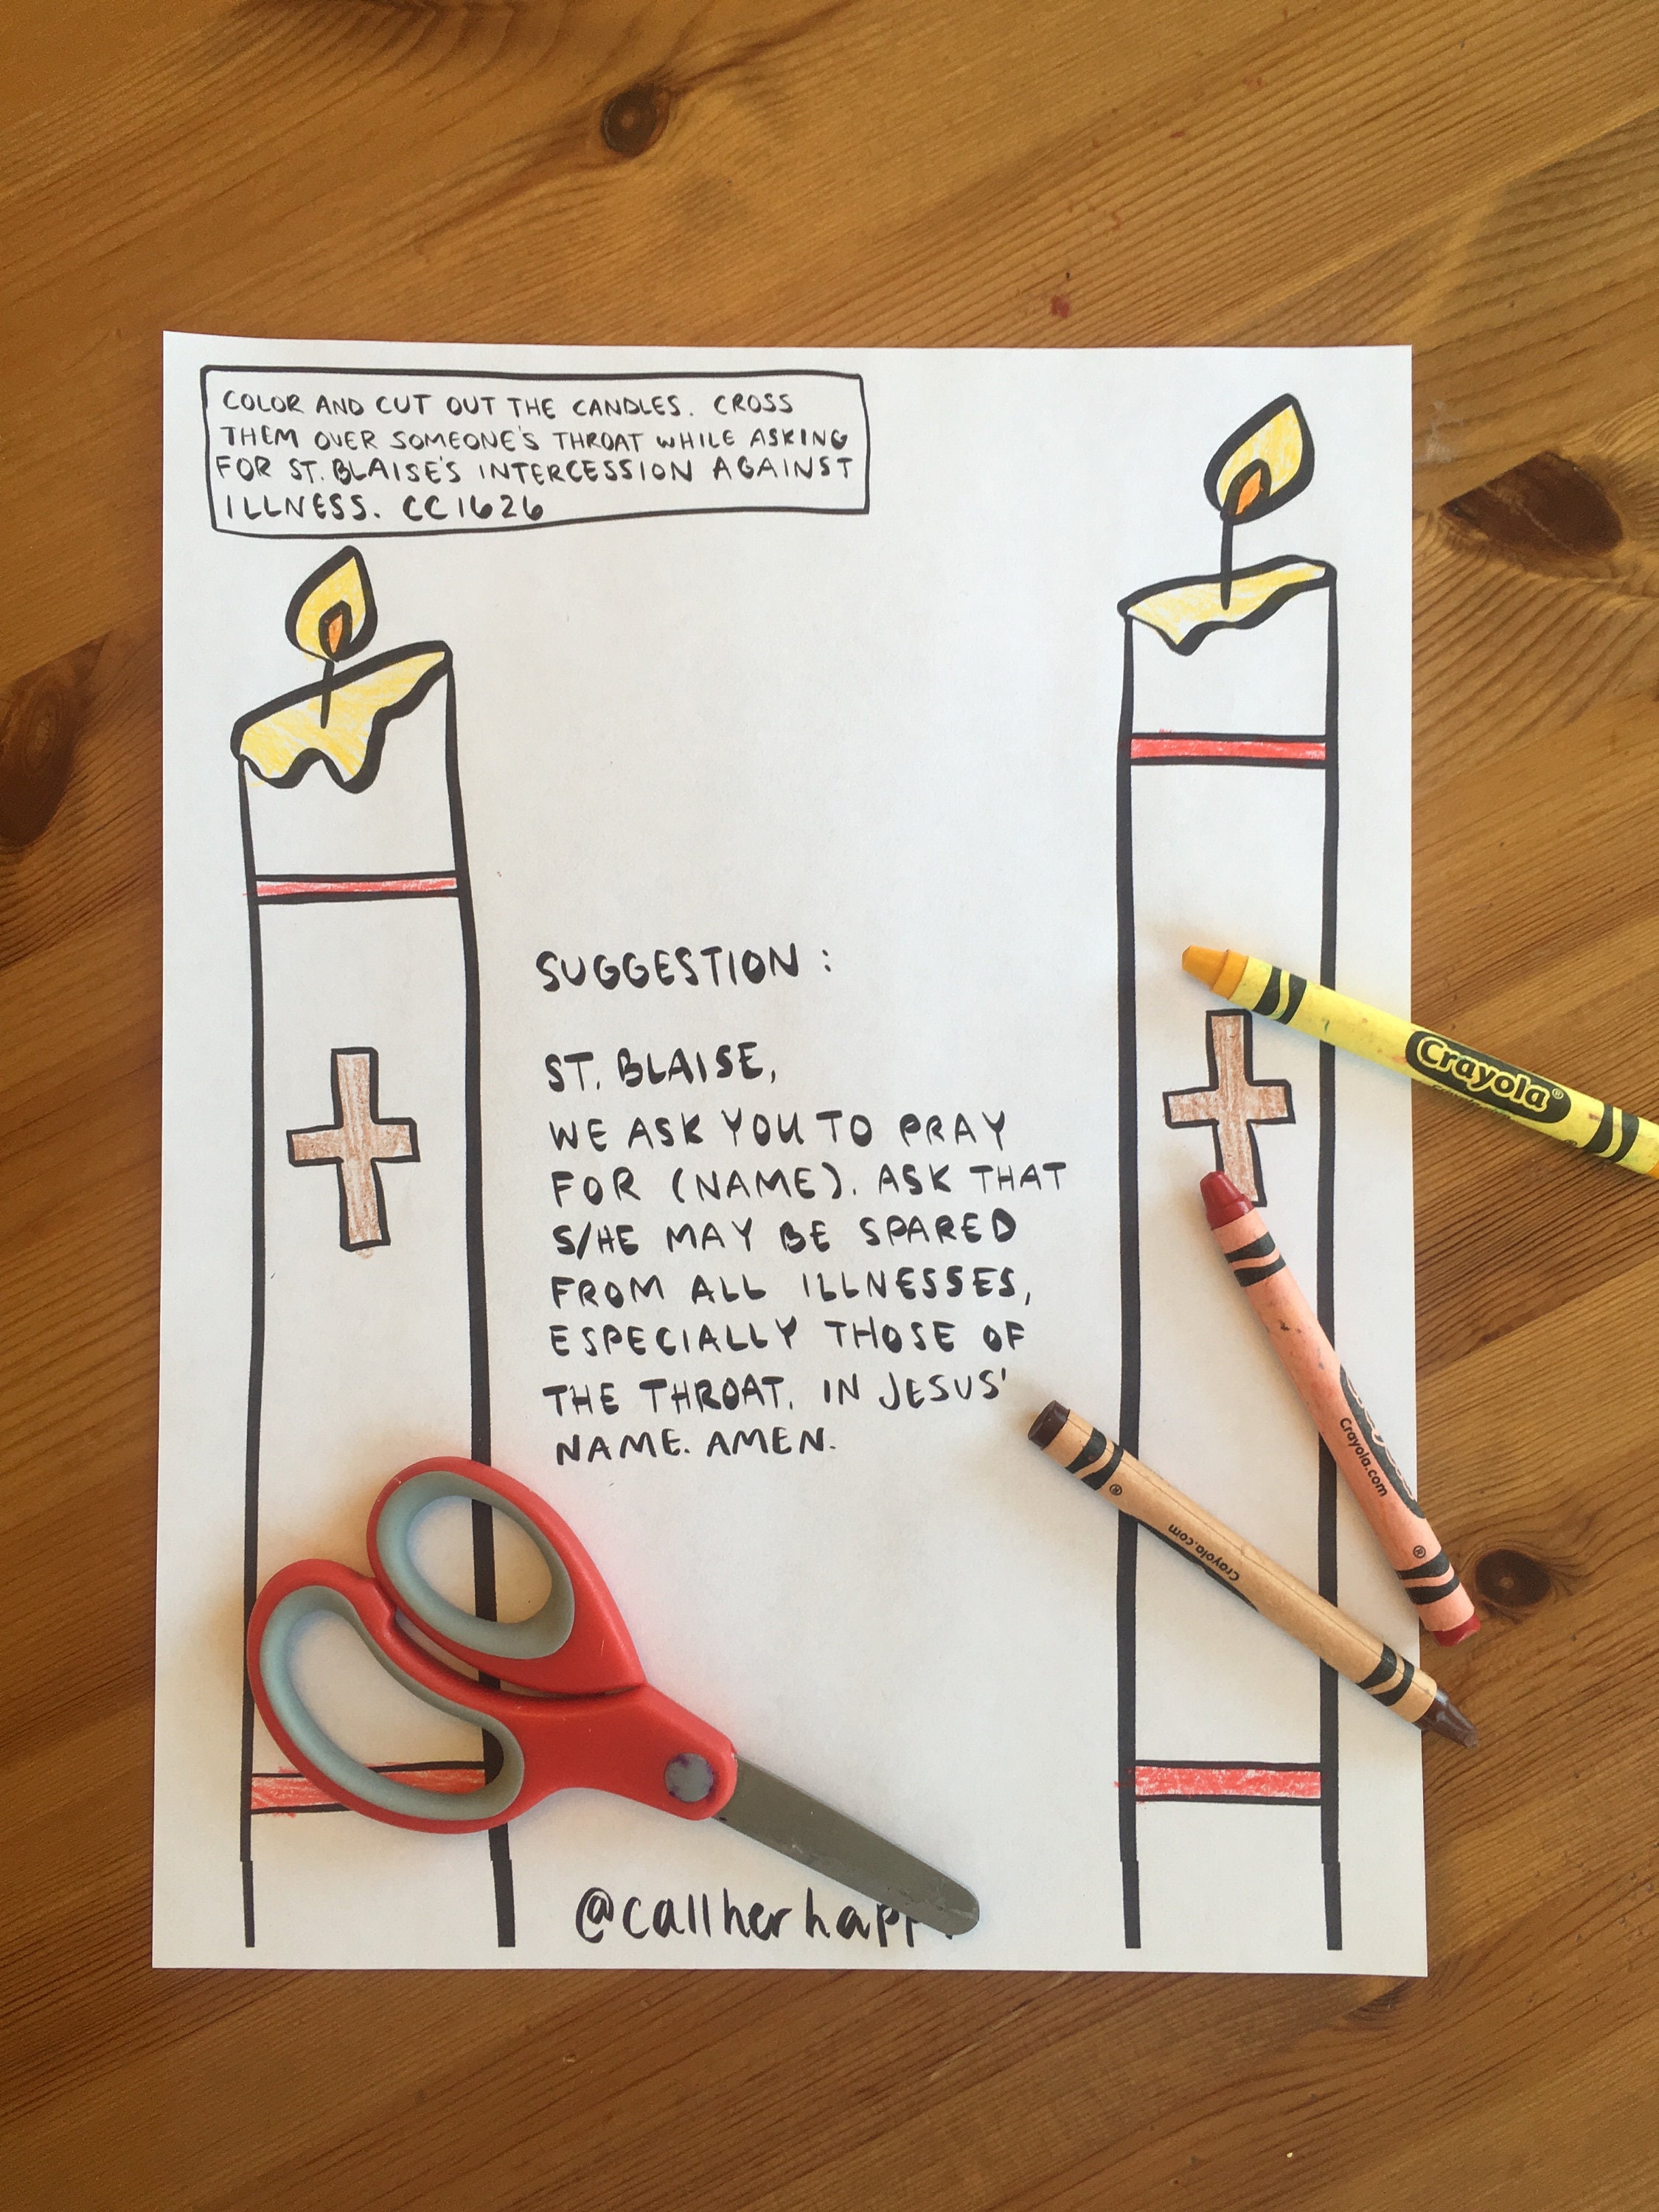 COLOR AND CUT OUT THE CANDLES. CROSS
THEM OVER SOMEONE'S THROAT WHILE ASKING
FOR ST. BLAISE'S INTERCESSION AGAINST
ILLNESS. CC1626
SUGGESTION:
ST. BLAISE,
WE ASK YOU TO PRAY
FOR (NAME). ASK THAT
S/HE MAY BE SPARED
FROM ALL ILLNESSES,
ESPECIALLY THOSE OF
THE THROAT. IN JESUS'
NAME. AMEN.
Crayola®
Crayola.com
®
®
Crayola.com